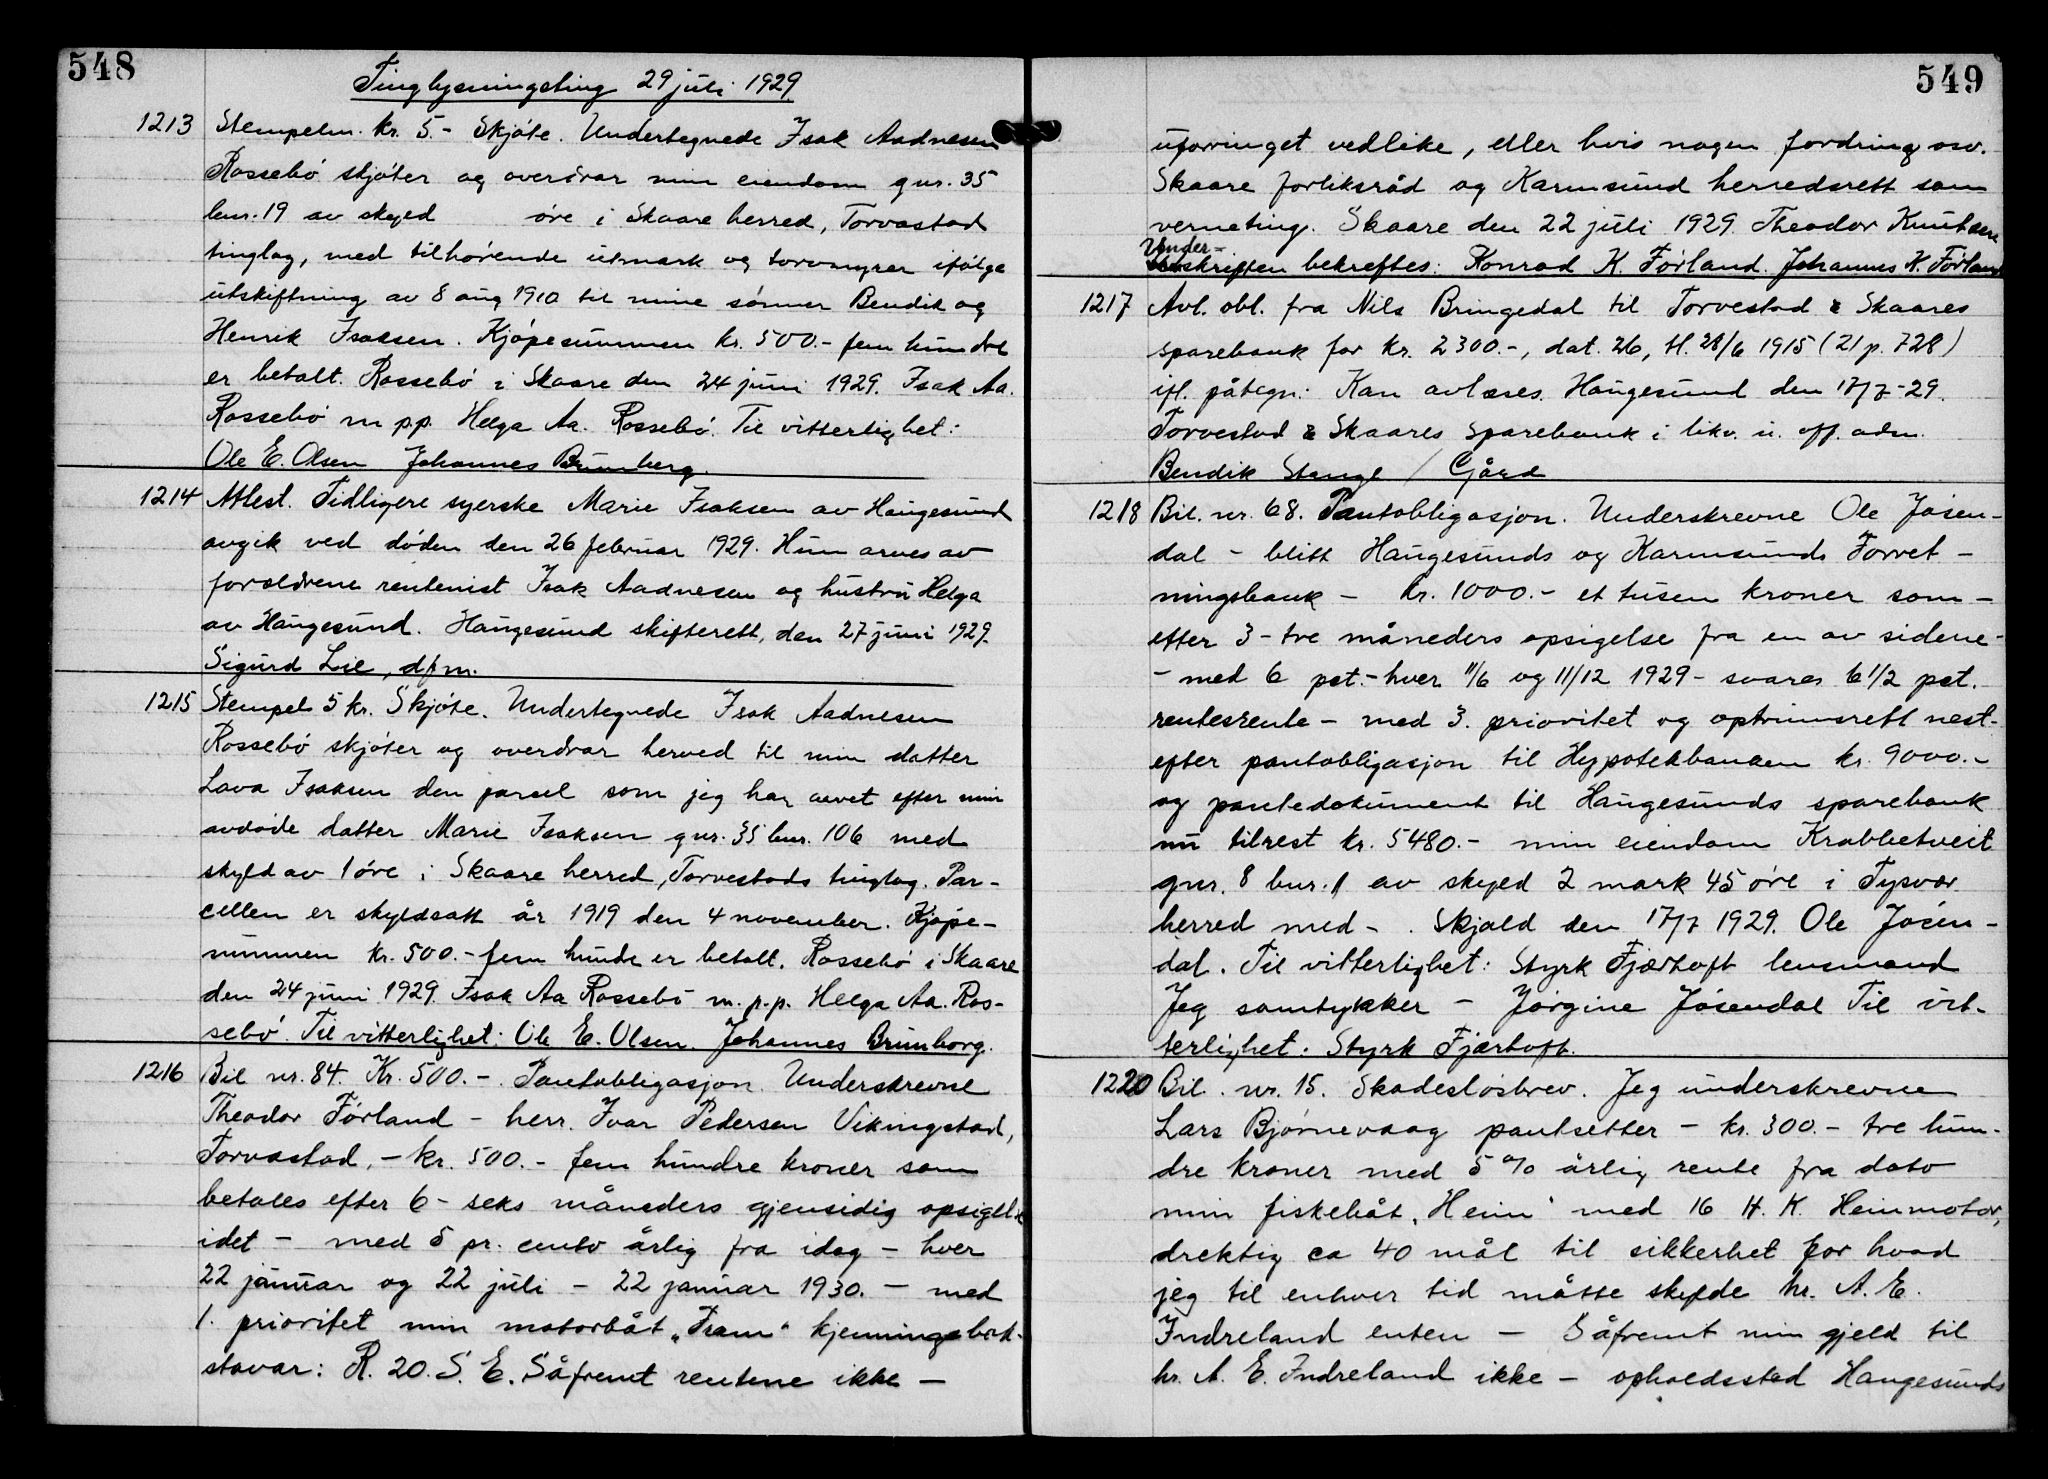 548
Tinglysningsting 29 juli 1929
1213 Stempelm. kr. 5.- Skjøte. Undertegnede Isak Aadnesen
Rossebø skjøter og overdrar min eiendom gnr. 35
bnr. 19 av skyld øre i Skaare herred, Torvastad
tinglag, med tilhørende utmark og torvmyrer ifølge
utskiftning av 8 aug 1910 til mine sønner Bendik og
Henrik Isaksen. Kjøpesummen kr. 500.- fem hundre
er betalt. Rossebø i Skaare den 24 juni 1929. Isak Aa.
Rossebø m p.p. Helga Aa. Rossebø. Til vitterlighet:
Ole E. Olsen Johannes Brumberg.
1214 Attest. Tidligere syerske Marie Isaksen av Haugesund
avgik ved døden den 26 februar 1929. Hun arves av
forældrene rentenist Isak Aadnesen og hustru Helga
av Haugesund. Haugesund skifterett, den 27 juni 1929.
Sigurd Lie, dfm.
1215 Stempel 5 kr. Skjøte. Undertegnede Isak Aadnesen
Rossebø skjøter og overdrar herved til min datter
Lava Isaksen den parsel som jeg har arvet efter min
avdøde datter Marie Isaksen gnr. 35 bnr. 106 med
skyld av 1 øre i Skaare herred, Torvestads tinglag. Par-
cellen er skyldsatt år 1919 den 4 november. Kjøpe-
summen kr. 500.- fem hundr er betalt. Rossebø i Skaare
den 24 juni 1929. Isak Aa Rossebø m.p.p. Helga Aa. Ros-
sebø. Til vitterlighet: Ole E. Olsen. Johannes Brumborg.
1216 Bil nr. 84. Kr. 500.-. Pantobligasjon. Underskrevne
Theodor Førland - herr. Ivar Pedersen Vikingstad,
Torvastad, - kr. 500.- fem hundre kroner som
betales efter 6 - seks måneders gjensidig opsigelse
idet - med 5 pr. cento årlig fra idag - hver
22 januar og 22 juli - 22 januar 1930. - med
1. prioritet min motorbåt „Fram" kjenningsbok-
stavar: R. 20. S. E. Såfremt rentene ikke -
549
uforringet vedlike, eller hvis nogen fordring osv.
Skaare forliksråd og Karmsund herredsrett som
verneting. Skaare den 22 juli 1929. Theodor Knutsen
Under-
skriften bekreftes: Konrad K. Førland. Johannes K. Førland
1217 Avl. obl. fra Nils Bringedal til Torvestad & Skaares
sparebank for kr. 2300.-, dat. 26, tl. 28/6 1915 (21 p. 728)
ifl. påtegn: Kan avlæses. Haugesund den 17/7-29.
Torvestad & Skaares Sparebank i likv. u. off. adm.
Bendik Stange / Gård
1218 Bil. nr. 68. Pantobligasjon. Underskrevne Ole Jøsen-
dal - blitt Haugesunds og Karmsunds Forret-
ningsbank - kr. 1000.- et tusen kroner som -
etter 3 - tre måneders opsigelse fra en av sidene -
- med 6 pct. - hver 11/6 og 11/12 1929 - svares 6 1/2 pct.
rentesrente - med 3. prioritet og optrinsrett nest-
efter pantobligasjon til Hypotekbanken kr. 9000.-
og pantedokument til Haugesunds sparebank
nu tilrest kr. 5480.- min eiendom Krabbetveit
gnr. 8 bnr. 1 av skyld 2 mark 45 øre i Tysvær
herred med - . Skjold den 17/7 1929. Ole Jøsen-
dal. Til vitterlighet: Styrk Fjærtoft lensmand
Jeg samtykker - Jørgine Jøsendal Til vit-
terlighet: Styrk Fjærtoft.
1220 Bil. nr. 15. Skadesløsbrev. Jeg underskrevne
Lars Bjørnevaag pantsetter - kr. 300.- tre hun-
dre kroner med 5 % årlig rente fra dato
min fiskebåt „Heim" med 16 H. K. Heinmotor,
drektig ca 40 mål til sikkerhet for hvad
jeg til enhver tid måtte skylde hr. A. E.
Indreland enten - Såfremt min gjeld til
hr. A. E. Indreland ikke - opholdsstad Haugesunds